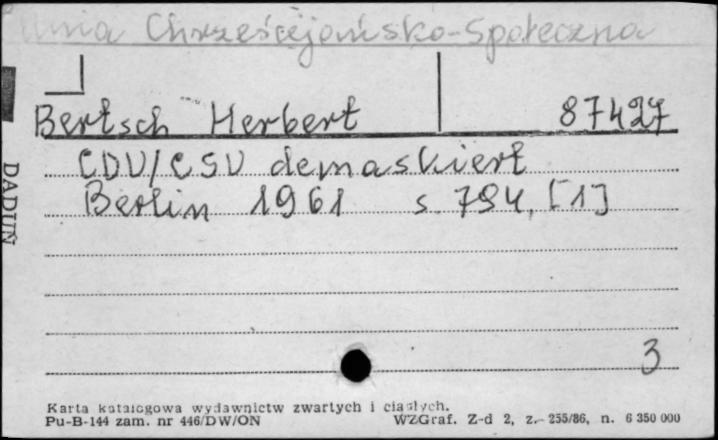 Unia Chrześcijańsko-Społeczna
Bertsch Herbert 87427
CDU/CSU demaskiert
Berlin 1961 s. 794, [1]
3
DADUŃ
Karta katalogowa wydawnictw zwartych i ciągłych.
Pu-B-144 zam. nr 446/DW/ON WZGraf. Z-d 2, z. 255/86, n. 6 350 000